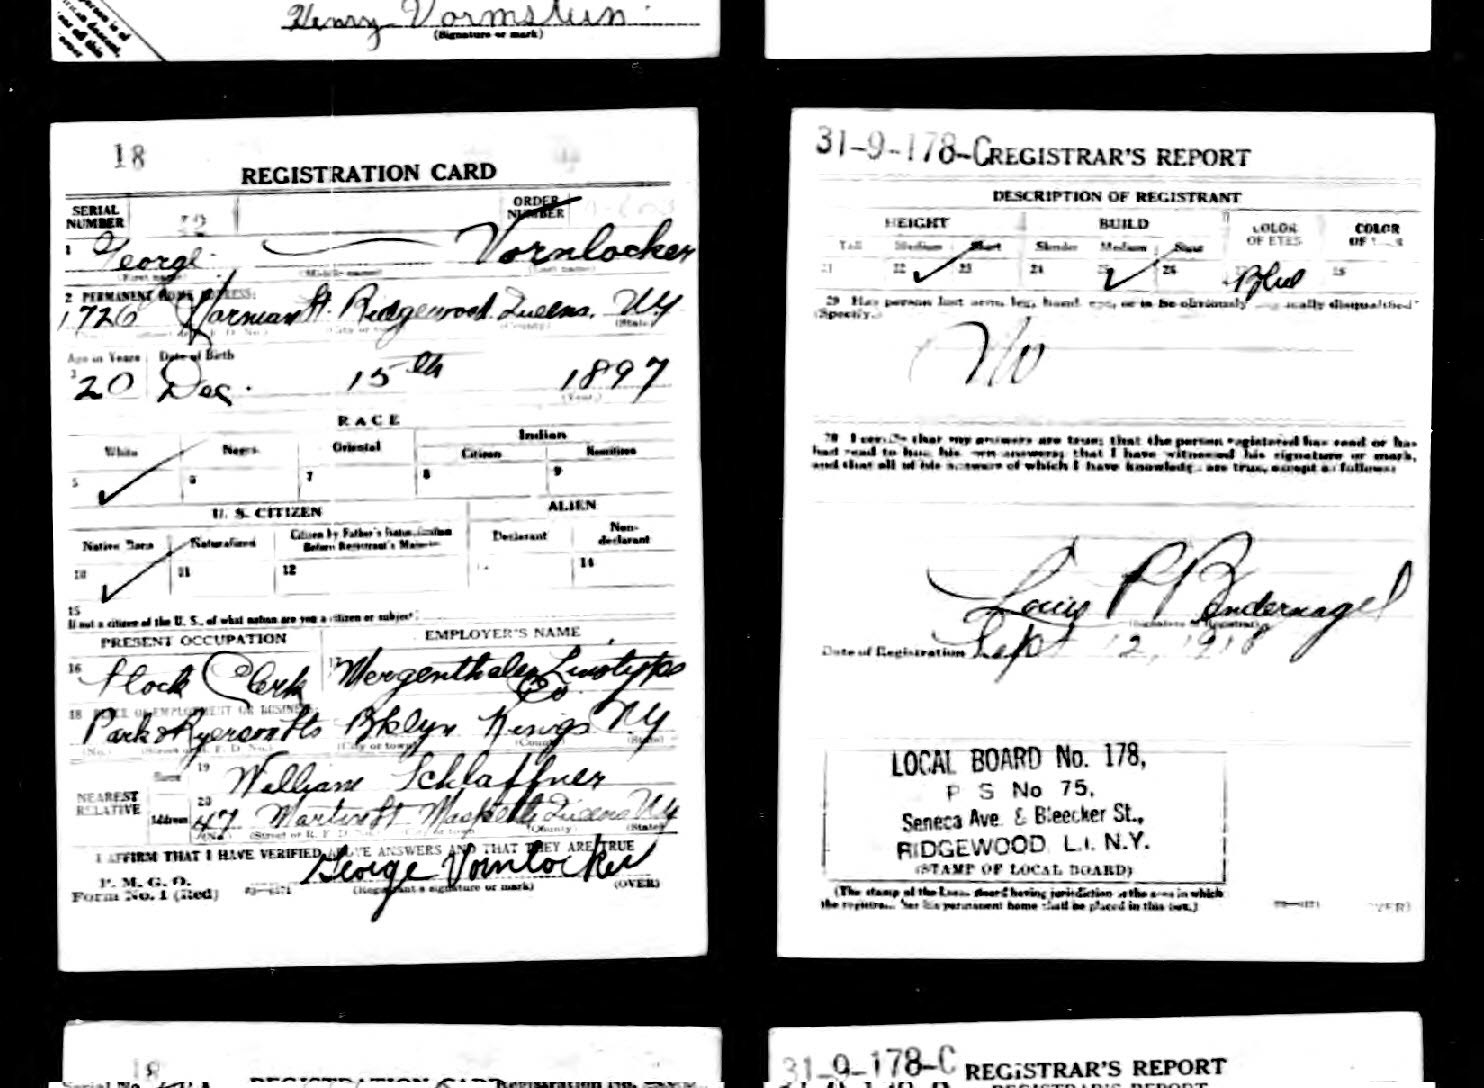 Henry Vormstein
(Signature or mark)
18
REGISTRATION CARD
SERIAL
NUMBER
ORDER
NUMBER
1 George Vornlocker
(First name) (Middle name) (Last name)
2 PERMANENT HOME ADDRESS:
1726 Harman St. Ridgewood Queens. NY
(State)
Age in Years Date of Birth
3 20 Dec. 15th 1897
(Year)
RACE
White Negro Oriental Indian
Citizen Noncitizen
5 6 7 8 9
U. S. CITIZEN ALIEN
Native Born Naturalized Citizen by Father's Naturalization
Before Registrant's Majority Declarant Non-
declarant
10 11 12 14
15
If not a citizen of the U. S., of what nation are you a citizen or subject?
PRESENT OCCUPATION EMPLOYER'S NAME
16 Stock Clerk 17 Mergenthaler Linotype
Co.
18 PLACE OF EMPLOYMENT OR BUSINESS:
Park & Ryerson Sts Bklyn Kings NY
(No.) (Street or R. F. D. No.) (City or town) (County) (State)
NEAREST
RELATIVE
Name 19 William Schlaffner
Address 20 47 Martin St Maspeth Queens NY
(No.) (Street or R. F. D. No.) (City or town) (County) (State)
I AFFIRM THAT I HAVE VERIFIED ABOVE ANSWERS AND THAT THEY ARE TRUE
P. M. G. O.
Form No. 1 (Red)
George Vornlocker
(Registrant's signature or mark) (OVER)
31-9-178-C REGISTRAR'S REPORT
DESCRIPTION OF REGISTRANT
HEIGHT BUILD COLOR
OF EYES COLOR
Tall Medium Short Slender Medium Stout
21 22 23 24 25 26 27 Blue
29 Has person lost arm, leg, hand, eye, or is he obviously physically disqualified?
(Specify.)
No
30 I certify that my answers are true; that the person registered has read or has
had read to him his own answers; that I have witnessed his signature or mark,
and that all of his answers of which I have knowledge are true, except as follows:
Louis P Bendernagel
(Signature of Registrar)
Date of Registration Sept 12, 1918
LOCAL BOARD No. 178,
P S No 75,
Seneca Ave. & Bleecker St.,
RIDGEWOOD L.I. N.Y.
(STAMP OF LOCAL BOARD)
(The stamp of the Local Board having jurisdiction of the area in which
the registrant has his permanent home shall be placed in this box.)
(OVER)
18
REGISTRATION CARD
31-9-178-C REGISTRAR'S REPORT